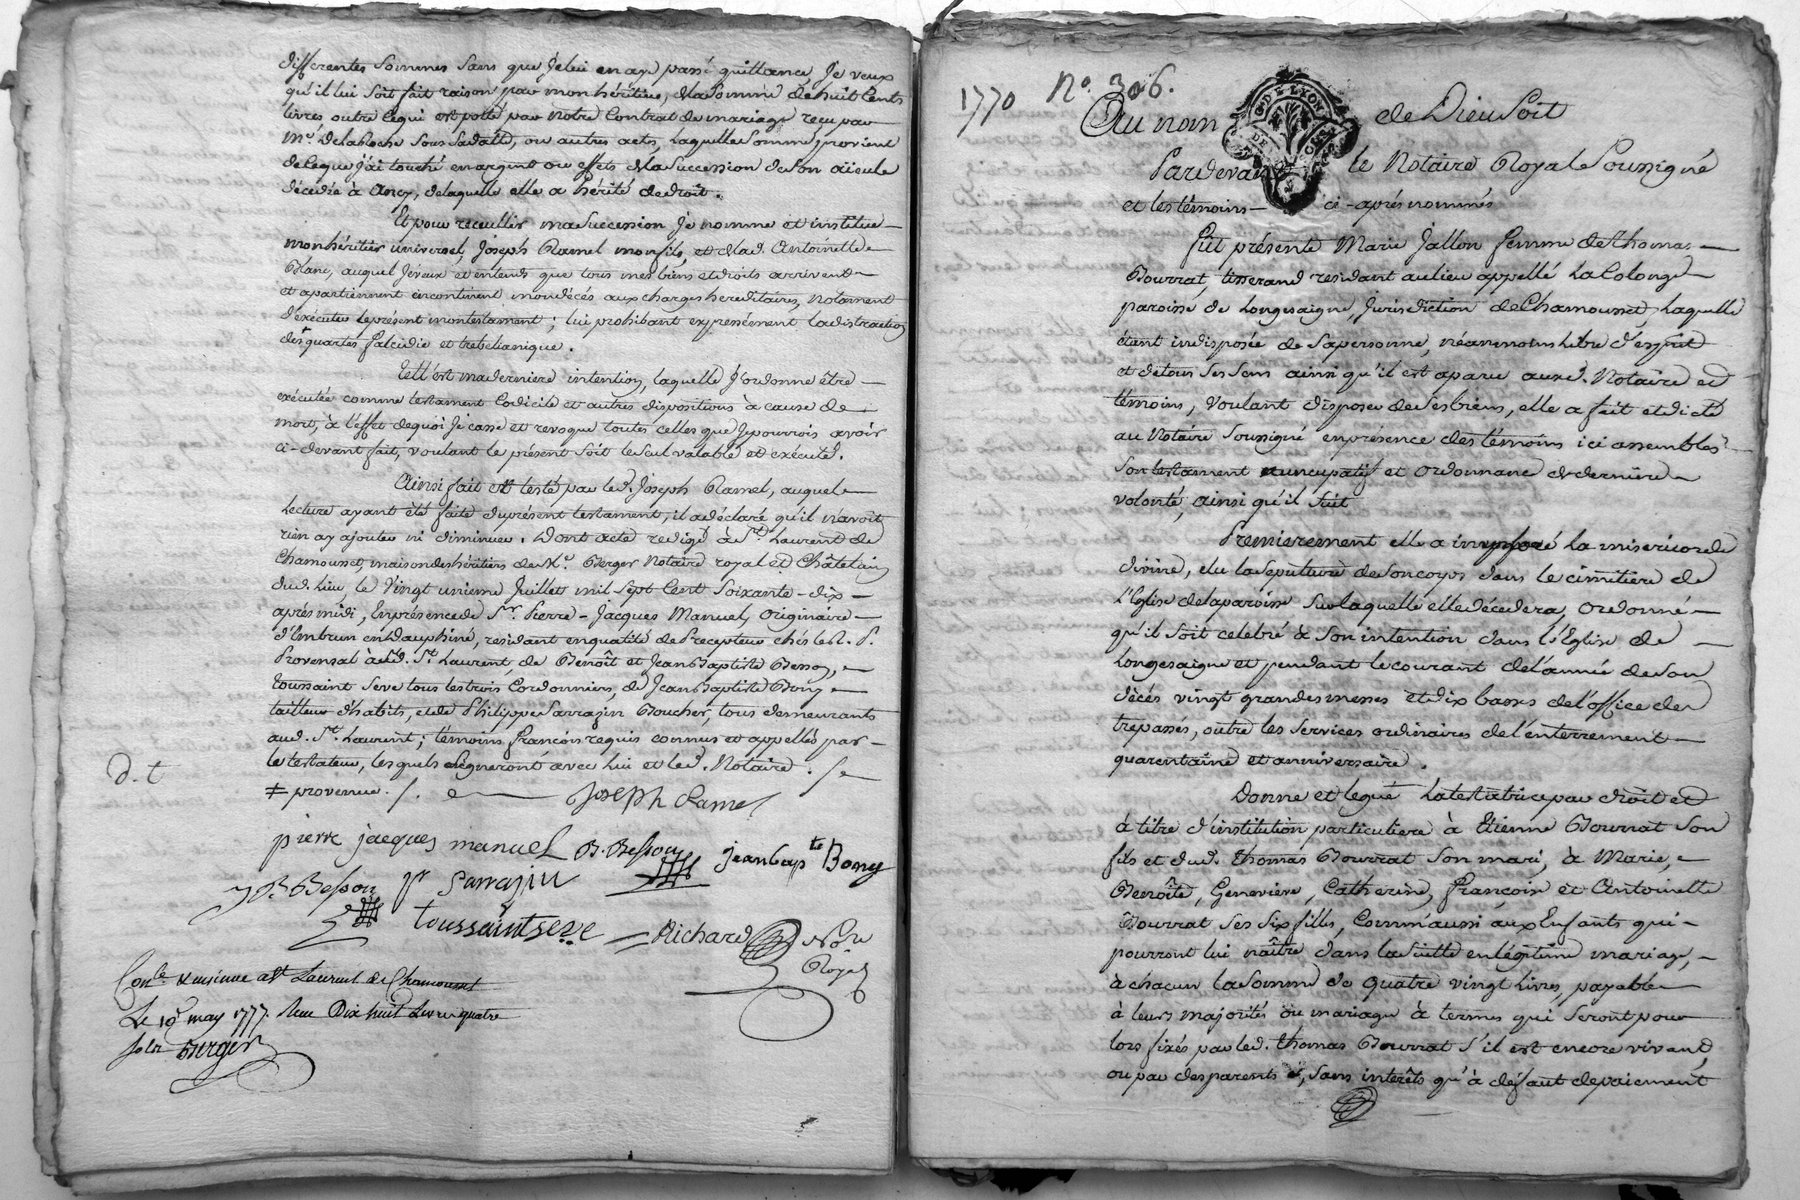 differentes Sommes Sans que Je lui en aye passé quittance, Je veux
qu'il lui Soit fait raison par mon héritier, de la Somme de huit Cents
livres outre ce qui est porté par notre Contrat de mariage reçu par
Me. Delaroche Sous Sa datte, ou autres actes, laquelle Somme provient
de ce que j'ai touché en argent ou effets de la Succession de Son aïeule
décédée à Ancy, de laquelle elle a hérité de droit.
Et pour recueillir ma Succession Je nomme et institue
mon héritier universel, Joseph Ramel mon fils, et de lad. Antoinette
Blanc, auquel Je veux et entends que tous mes biens et droits arrivent
et apartiennent incontinent mon décès aux charges hereditaires, notament
d'exécuter le présent mon testament; lui prohibant expressément la distraction
des quartes falcidie et trebellianique.
Telle est ma derniere intention, laquelle J'ordonne être
exécutée comme testament Codicile et autres dispositions à cause de
mort, à l'effet de quoi Je casse et revoque toutes celles que Je pourrois avoir
ci-devant fait, voulant le présent Soit le Seul valable et exécuté.
Ainsi fait et testé par led. Joseph Ramel, auquel
Lecture ayant été faite du présent testament, il a déclaré qu'il n'avoit
rien a y ajouter ni diminuer. Dont acte redigé à St. Laurent de
Chamousset, maison des héritiers de Me. Berger Notaire royal et Châtelain
dud. Lieu, le Vingt unieme Juillet mil Sept Cent Soixante-dix
après midi, En présence de Sr. Pierre-Jacques Manuel, originaire
d'Embrun en Dauphiné, residant en qualité de Precepteur chés le S. P.
Provensal aud. St. Laurent, de Benoît et Jean Baptiste Besson,
toussaint Seve tous les trois Cordonniers, de Jean Baptiste Bony
tailleur d'habits, et de Philippe Sarrazin Boucher, tous demeurants
aud. St. Laurent; témoins françois requis connus et appellés par
le testateur, lesquels Signeront avec lui et led. Notaire.
≠ provenue.
Joseph Ramel
d. t
pierre jacques manuel B. Besson jeanbapte Bony
J. B. Besson Pr Sarrazin
toussaint seve Richard Nore
Royal
Conle & insinué a St Laurent de Chamousset
Le 19 may 1777. Reçu Dix huit Livres quatre
sols Berger
1770 No. 306.
G. DE LYON
DE
Au nom de Dieu Soit
Pardevant le Notaire Royal Soussigné
et les témoins ci-après nommés
fut présente Marie Jallon femme de thomas
Bourrat, tisserand residant au lieu appellé La Colonge
paroisse de Longesaigne, Jurisdiction de Chamousset, Laquelle
étant indisposée de Sa personne, néanmoins libre d'esprit
et de tous Ses Sens ainsi qu'il est aparu auxd. Notaire et
témoins, Voulant disposer de Ses biens, elle a fait et dicté
au Notaire Soussigné en présence des témoins ici assemblés
Son testament nuncupatif et ordonnance de derniere
volonté, ainsi qu'il Suit
Premierement elle a imploré La misericorde
divine, élu la Sepulture de Son corps dans le cimitiere de
L'Eglise de la paroisse Sur laquelle elle décedera, ordonné
qu'il Soit celebré à Son intention dans l'Eglise de
Longesaigne et pendant le courant de l'année de Son
décès vingt grandes messes et dix basses de l'office des
trepassés, outre les Services ordinaires de l'enterrement
quarentaine et anniversaire.
Donne et legue La testatrice par droit et
à titre d'institution particuliere à Etienne Bourrat Son
fils et dud. thomas Bourrat Son mari, à Marie,
Benoîte, Genevieve, Catherine, Françoise et Antoinette
Bourrat Ses Six filles, Comm'aussi aux Enfants qui
pourront lui naître dans la Suitte en légitime mariage,
à chacun La Somme de quatre vingt Livres, payable
à leurs majorités ou mariage à termes qui Seront pour
lors fixés par led. thomas Bourrat S'il est encore vivant,
ou par des parents, Sans interêts qu'à défaut de paiement